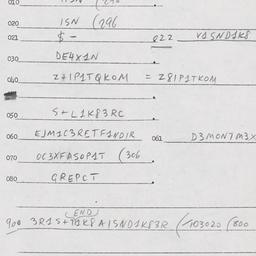 010
020 ISN (296
021 $ - 022 V1SND1K8
030 DE4X1N
040 Z4IP1TQKOM = Z8IP1TKOM
050 S+L1K83RC
060 EJM1C3RETF1NDIR 061 D3MON7M3X
070 OC3XFASOP1T (306
080 GREPCT
END
900 3R1S+ A1SND1K83R (703020 (800